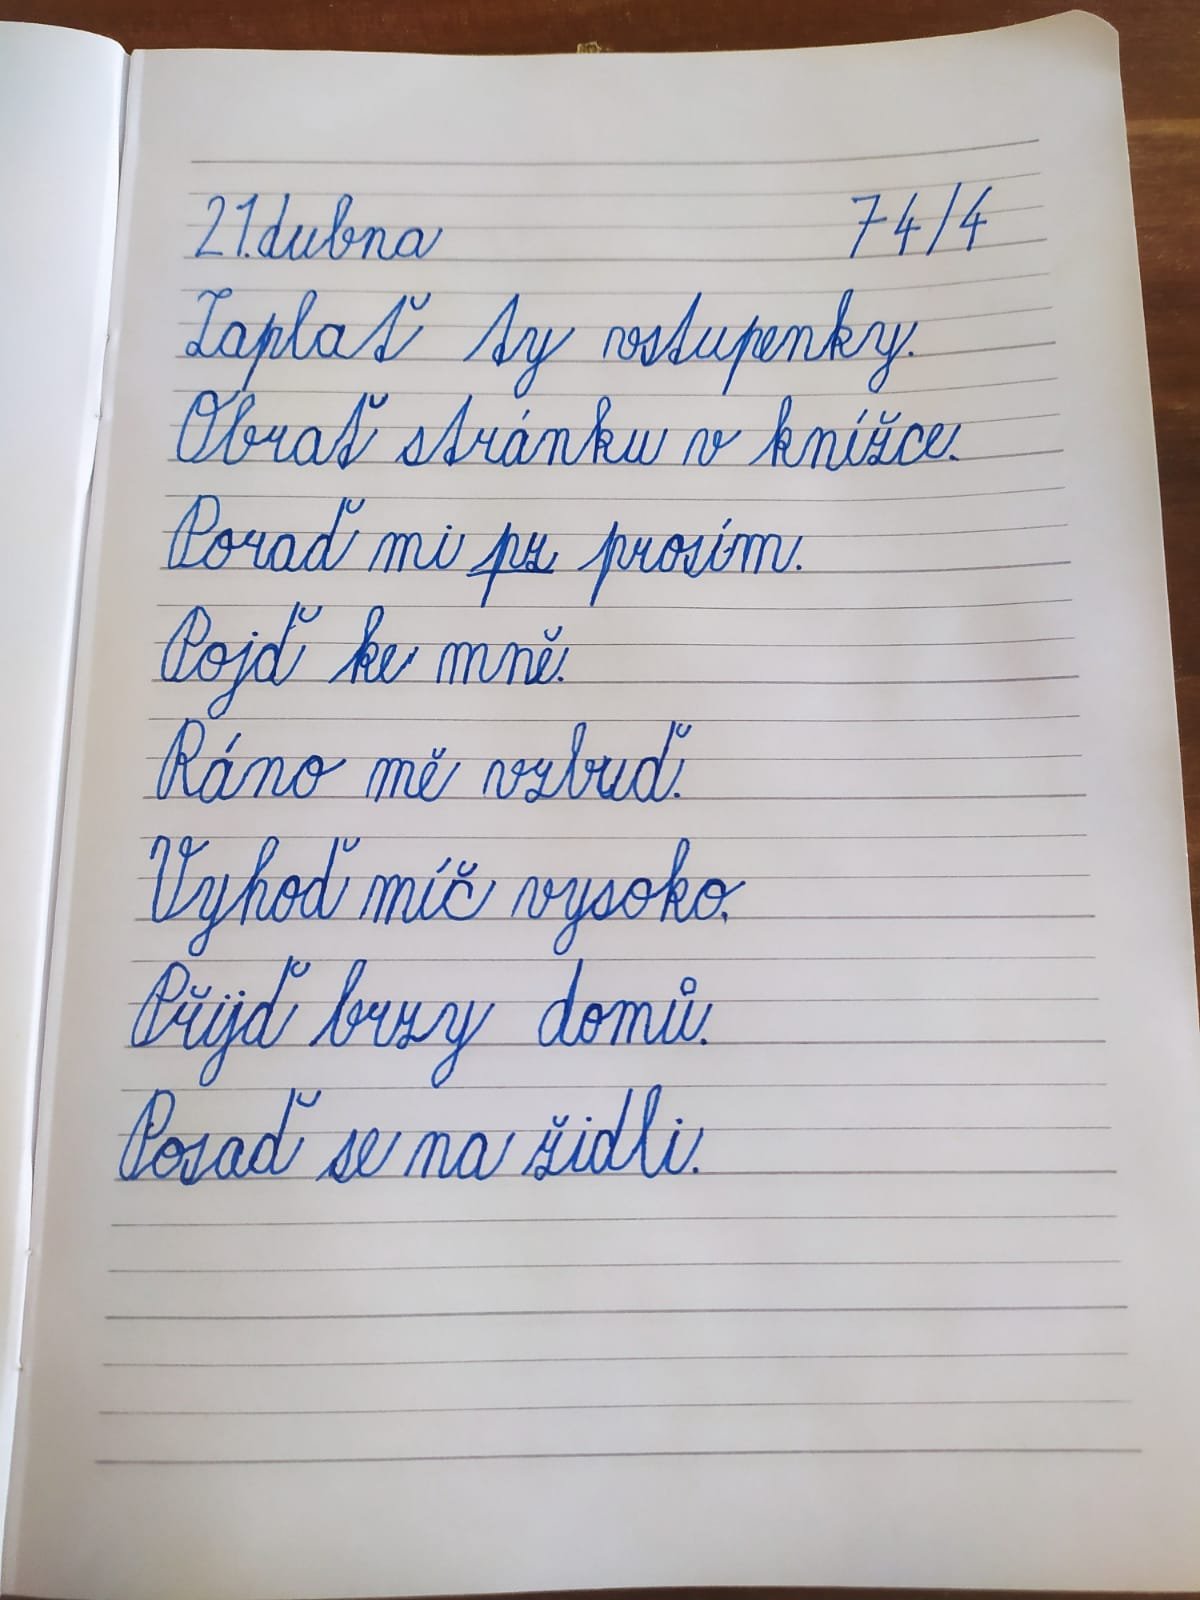 21. dubna 74/4
Zaplať ty vstupenky.
Obrať stránku v knížce.
Poraď mi pr prosím.
Pojď ke mně.
Ráno mě vzbuď.
Vyhoď míč vysoko.
Přijď brzy domů.
Posaď se na židli.